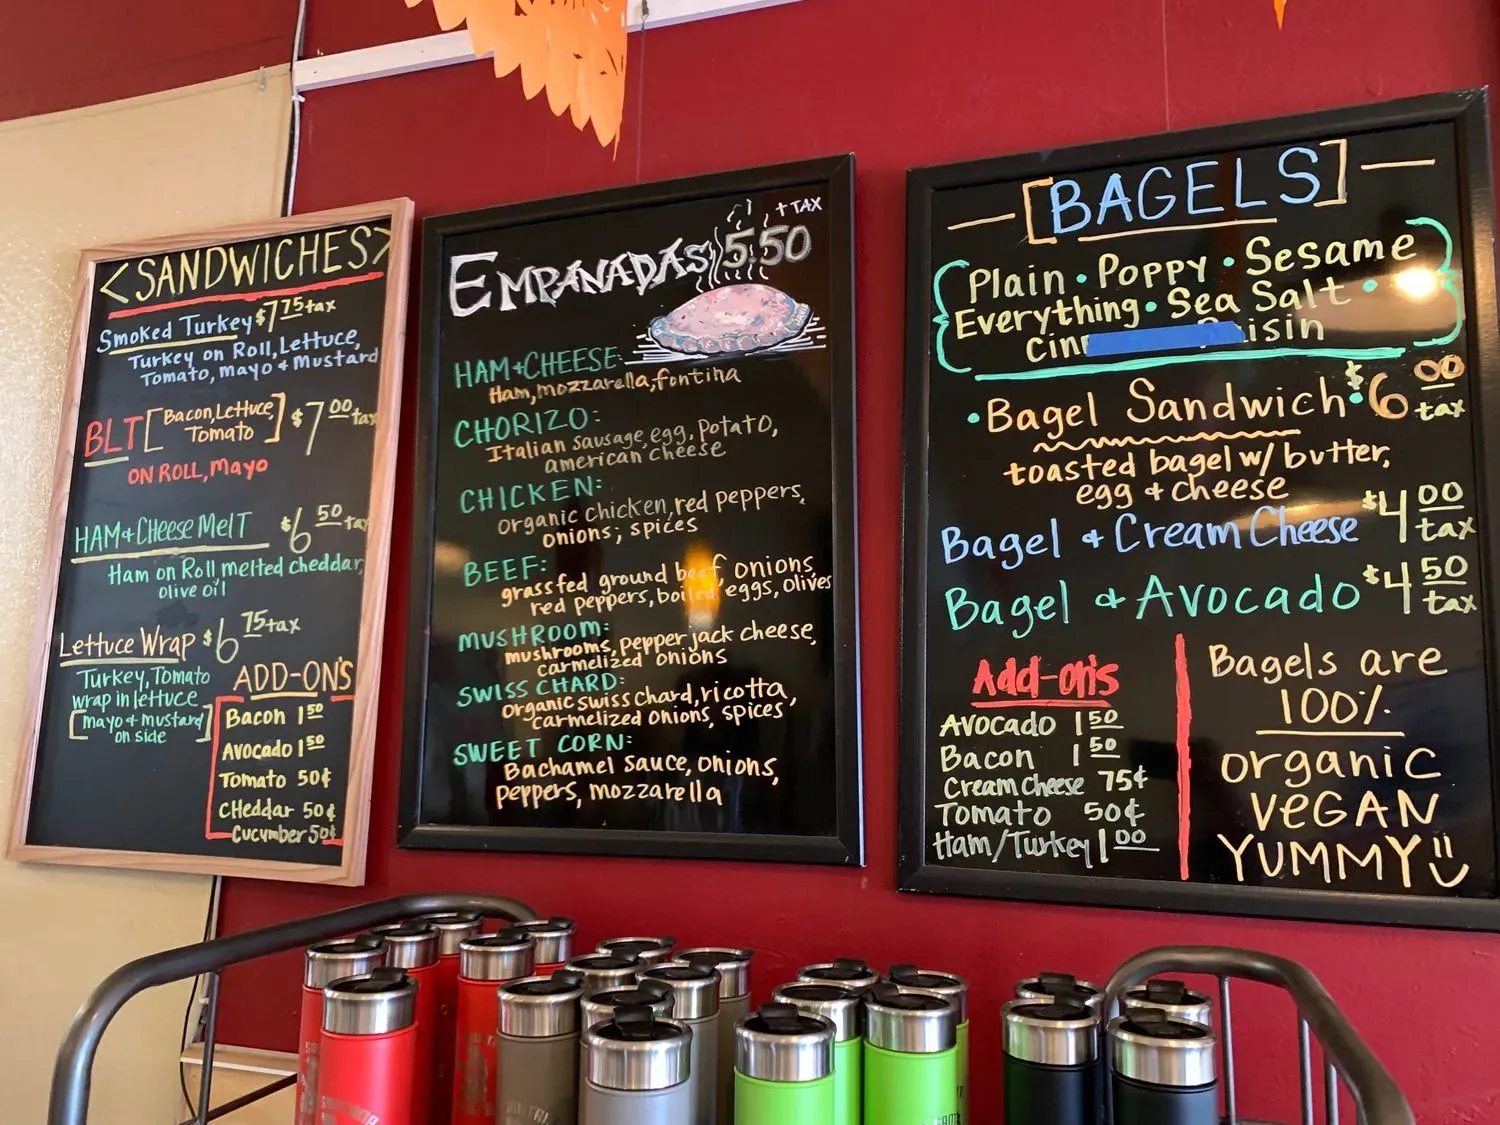 <SANDWICHES>
Smoked Turkey $7 75 tax
Turkey on Roll, Lettuce,
Tomato, mayo + Mustard
BLT [Bacon, Lettuce, Tomato] $7 00 tax
ON ROLL, Mayo
HAM + CHeese MeLT $6 50 tax
Ham on Roll melted cheddar,
olive oil
Lettuce Wrap $6 75 tax
Turkey, Tomato
wrap in lettuce
[mayo + mustard
on side]
ADD-ON'S
Bacon 1 50
Avocado 1 50
Tomato 50¢
CHeddar 50¢
Cucumber 50¢
+ TAX
EMPANADAS 5.50
HAM + CHEESE:
Ham, mozzarella, fontina
CHORIZO:
Italian sausage, egg, potato,
american cheese
CHICKEN:
organic chicken, red peppers,
onions; spices
BEEF:
grassfed ground beef, onions,
red peppers, boiled eggs, olives
MUSHROOM:
mushrooms, pepper jack cheese,
carmelized onions
SWISS CHARD:
organic swiss chard, ricotta,
carmelized onions, spices
SWEET CORN:
Bachamel sauce, onions,
peppers, mozzarella
[BAGELS]
Plain • Poppy • Sesame
Everything • Sea Salt •
cin isin
• Bagel Sandwich: $6 00 tax
toasted bagel w/ butter,
egg + cheese
Bagel + Cream Cheese $4 00 tax
Bagel + Avocado $4 50 tax
Add-on's
Avocado 1 50
Bacon 1 50
Cream Cheese 75¢
Tomato 50¢
Ham/Turkey 1 00
Bagels are
100%
organic
VeGAN
YUMMY